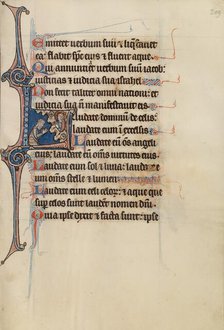 Emittet uerbum suū et liq̄facit
ea: flabit sp̄c eius et fluent aque.
Qui annuntiat uerbum suū iacob:
iusticias et iudicia sua israhel.
Non fecit taliter omni nationi: et
iudicia sua n̄ manifestauit eis.
Laudate dominū de celis:
laudate eum ī excelsis.
Laudate eū om̄s angeli
eius: laudate eū om̄s uirtutes eius.
Laudate eum sol et luna: laudate eū
om̄s stelle et lumen.
Laudate eum celi celoꝝ: et aque que
sup̄ celos sunt laudent nomen dn̄i.
Quia ipse dixit et facta sunt: ipse